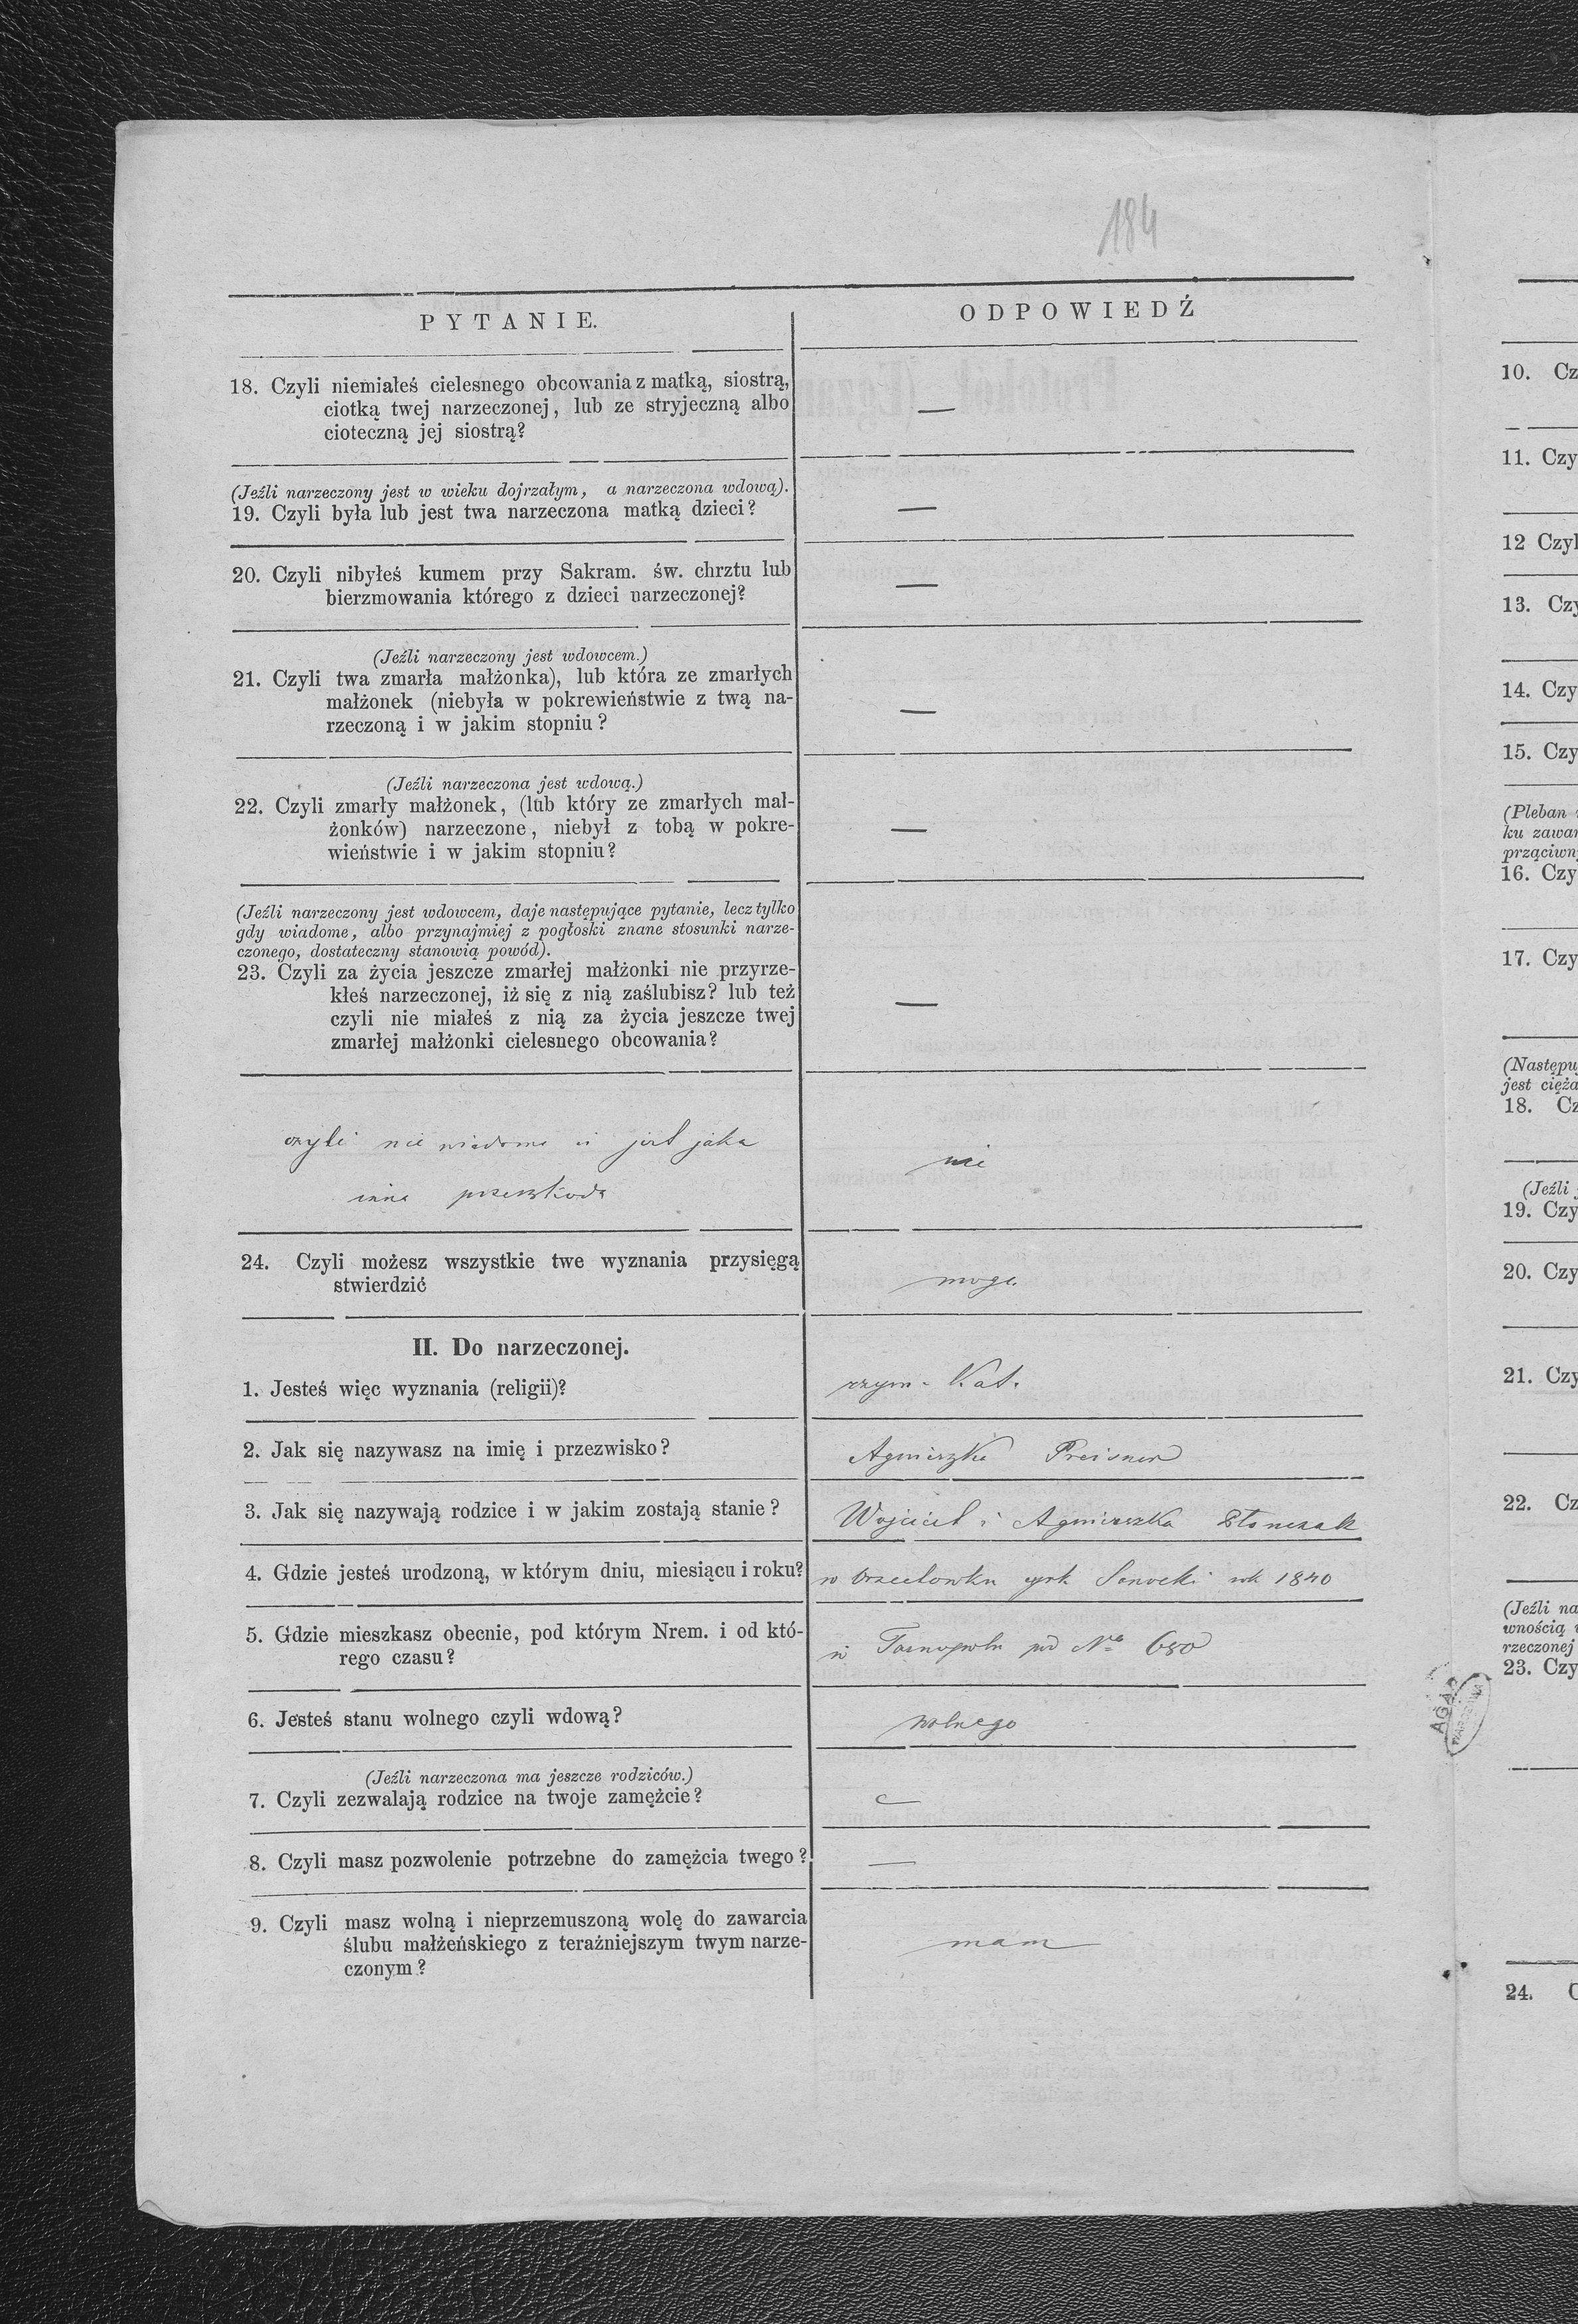 184
PYTANIE.
ODPOWIEDŹ
18. Czyli niemiałeś cielesnego obcowania z matką, siostrą,
ciotką twej narzeczonej, lub ze stryjeczną albo
cioteczną jej siostrą?
—
(Jeźli narzeczony jest w wieku dojrzałym, a narzeczona wdową).
19. Czyli była lub jest twa narzeczona matką dzieci?
—
20. Czyli nibyłeś kumem przy Sakram. św. chrztu lub
bierzmowania którego z dzieci narzeczonej?
—
(Jeźli narzeczony jest wdowcem.)
21. Czyli twa zmarła małżonka), lub która ze zmarłych
małżonek (niebyła w pokrewieństwie z twą na-
rzeczoną i w jakim stopniu?
—
(Jeźli narzeczona jest wdową.)
22. Czyli zmarły małżonek, (lub który ze zmarłych mał-
żonków) narzeczone, niebył z tobą w pokre-
wieństwie i w jakim stopniu?
—
(Jeźli narzeczony jest wdowcem, daje następujące pytanie, lecz tylko
gdy wiadome, albo przynajmiej z pogłoski znane stosunki narze-
czonego, dostateczny stanowią powód).
23. Czyli za życia jeszcze zmarłej małżonki nie przyrze-
kłeś narzeczonej, iż się z nią zaślubisz? lub też
czyli nie miałeś z nią za życia jeszcze twej
zmarłej małżonki cielesnego obcowania?
—
czyli nie wiadomo ci jest jaka
inna przeszkoda
nie
24. Czyli możesz wszystkie twe wyznania przysięgą
stwierdzić
moge.
II. Do narzeczonej.
1. Jesteś więc wyznania (religii)?
rzym. Kat.
2. Jak się nazywasz na imię i przezwisko?
Agnieszka Preisner
3. Jak się nazywają rodzice i w jakim zostają stanie?
Wojciech i Agnieszka
4. Gdzie jesteś urodzoną, w którym dniu, miesiącu i roku?
w Sanocki rok 1840
5. Gdzie mieszkasz obecnie, pod którym Nrem. i od któ-
rego czasu?
w Tarnopolu pod No 680
6. Jesteś stanu wolnego czyli wdową?
wolnego
(Jeźli narzeczona ma jeszcze rodziców.)
7. Czyli zezwalają rodzice na twoje zamężcie?
—
8. Czyli masz pozwolenie potrzebne do zamężcia twego?
—
9. Czyli masz wolną i nieprzemuszoną wolę do zawarcia
ślubu małżeńskiego z teraźniejszym twym narze-
czonym?
mam
10. Cz
11. Czy
12 Czyl
13. Czy
14. Czy
15. Czy
(Pleban
ku zawar
prząciwn
16. Czy
17. Czy
(Następu
jest cięża
18. Cz
(Jeźli
19. Czy
20. Czy
21. Czy
22. Cz
(Jeźli na
wnością
rzeczonej
23. Czy
24. C
AGAD
WARSZAWA